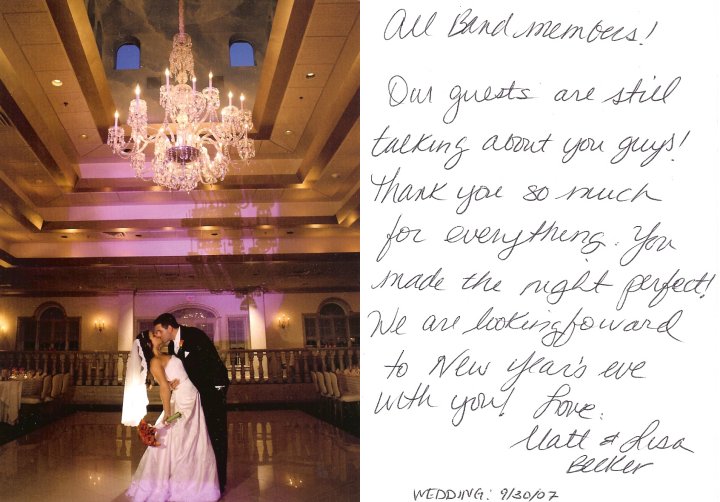 All Band members!
Our guests are still
talking about you guys!
Thank you so much
for everything. You
made the night perfect!
We are looking forward
to New Year's eve
with you! Love,
Matt & Lisa
Becker
WEDDING: 9/30/07